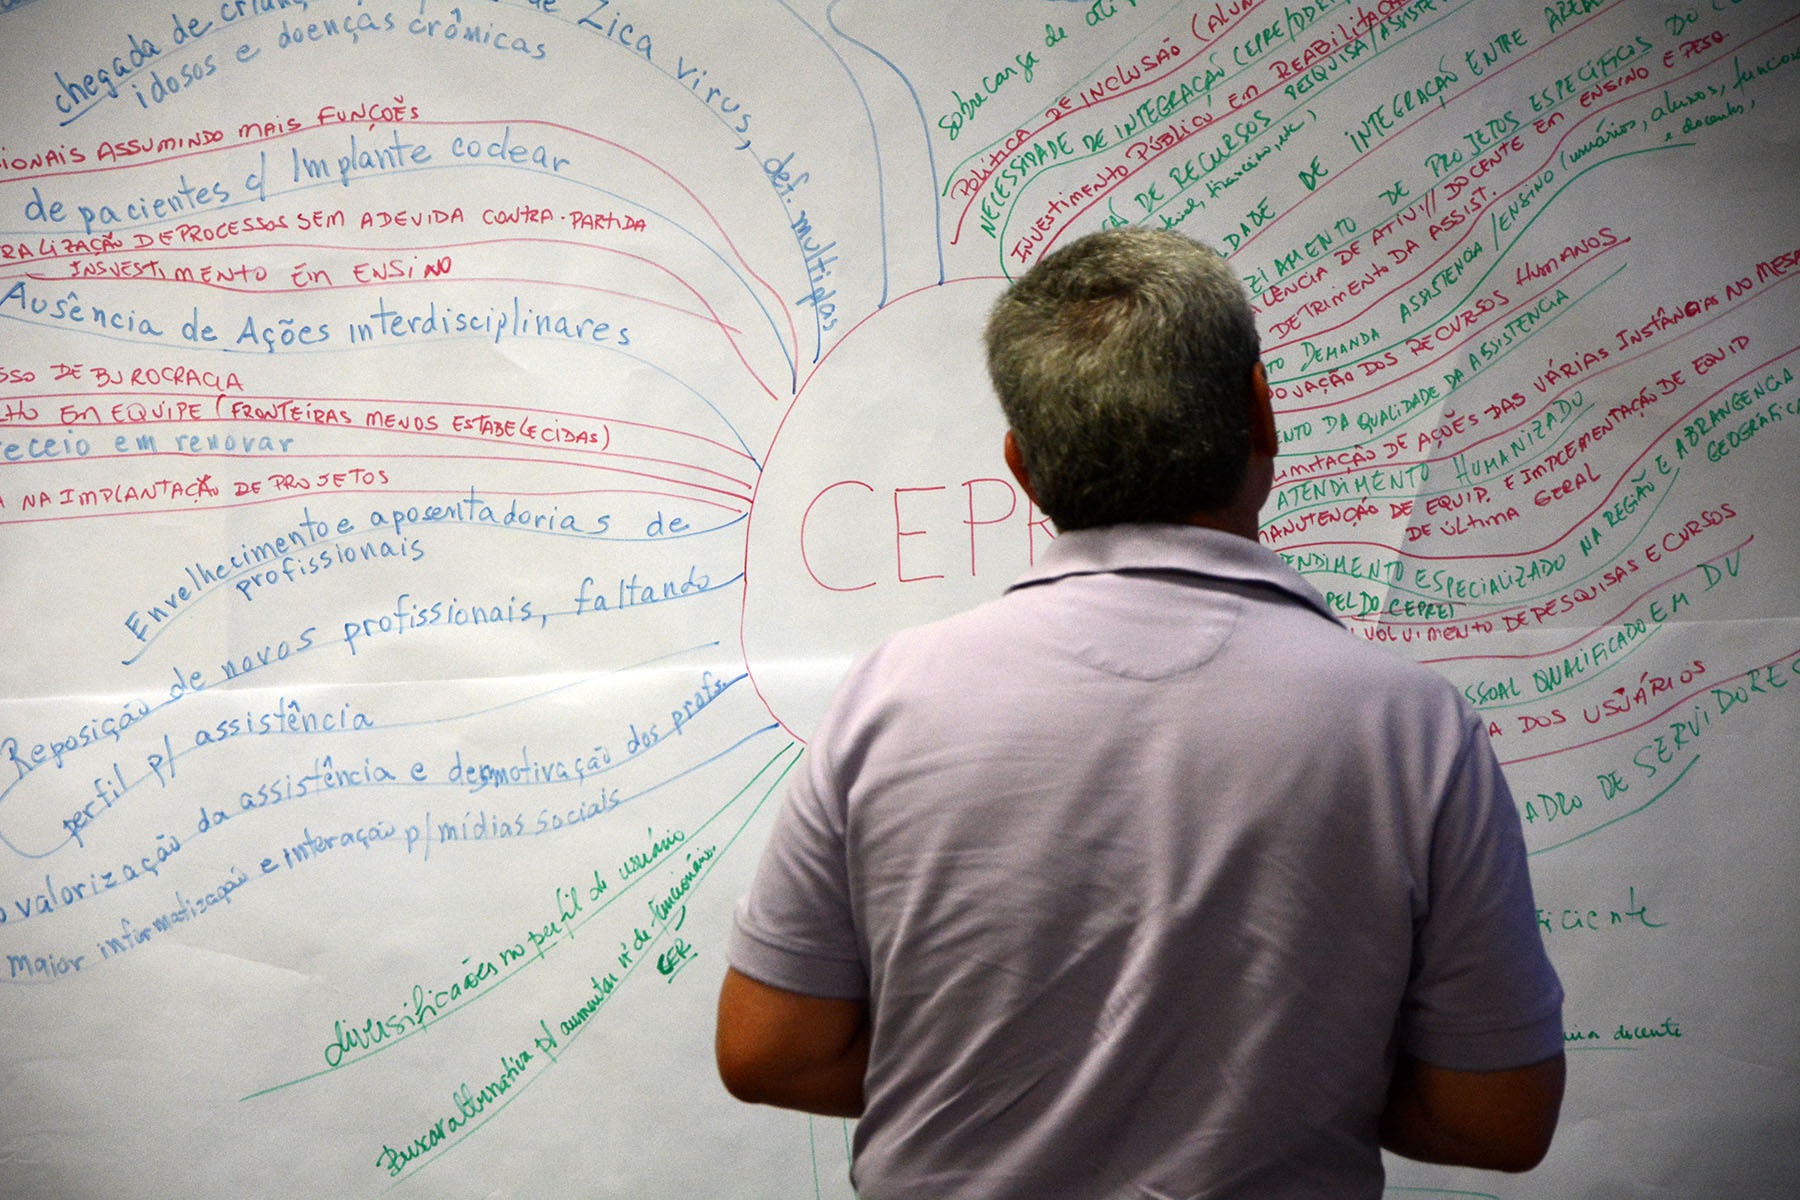 chegada de
Zica virus, def. multiplas
idosos e doenças crômicas
IONAIS ASSUMINDO MAIS FUNÇOẼS
de pacientes c/ Implante codear
RALIZAÇÃO DE PROCESSOS SEM A DEVIDA CONTRA-PARTIDA
INSVESTIMENTO EM ENSINO
Ausência de Ações interdisciplinares
SSO DE BUROCRACIA
LHO EM EQUIPE (FRONTEIRAS MENOS ESTABELECIDAS)
eceio em renovar
A NA IMPLANTAÇÃO DE PROJETOS
Envelhecimento e aposentadorias de
profissionais
Reposição de novos profissionais, faltando
perfil p/ assistência
valorização da assistência e desmotivação dos profs.
maior informatização e interação p/ mídias sociais
diversificações no perfil do usuário
Buscar alternativa p/ aumentar nº de funcionários.
CER
CEPR
sobrecarga de
POLÍTICA DE INCLUSÃO
NECESSIDADE DE INTEGRAÇÃO (CEPRE/DDR
INVESTIMENTO PÚBLICO EM REABILITAÇÃ
DE RECURSOS PESQUISA/ASSISTE
DADE DE INTEGRAÇÃO ENTRE
AMENTO DE PROJETOS ESPECÍFICOS DO
LENCIA DE ATIVI// DOCENTE EM ENSINO E PESQ.
DETRIMENTO DA ASSIST.
TO DEMANDA ASSISTENCIA/ENSINO (usuários, alunos, funcion
e docentes,
OVAÇÃO DOS RECURSOS HUMANOS
ENTO DA QUALIDADE DA ASSISTENCIA
LIMITAÇÃO DE AÇÕES DAS VÁRIAS INSTÂNCIAS NO MESM
ATENDIMENTO HUMANIZADO
MANUTENÇÃO DE EQUIP. E IMPLEMENTAÇÃO DE EQUIP
DE ÚLTIMA GERAL
ENDIMENTO ESPECIALIZADO NA REGIÃO E ABRANGENCIA
GEOGRÁFICA
PEL DO CEPRE
VOLVIMENTO DE PESQUISAS E CURSOS
SSOAL QUALIFICADO EM DV
A DOS USUÁRIOS
ADRO DE SERVIDORES
ICIENTE
docente